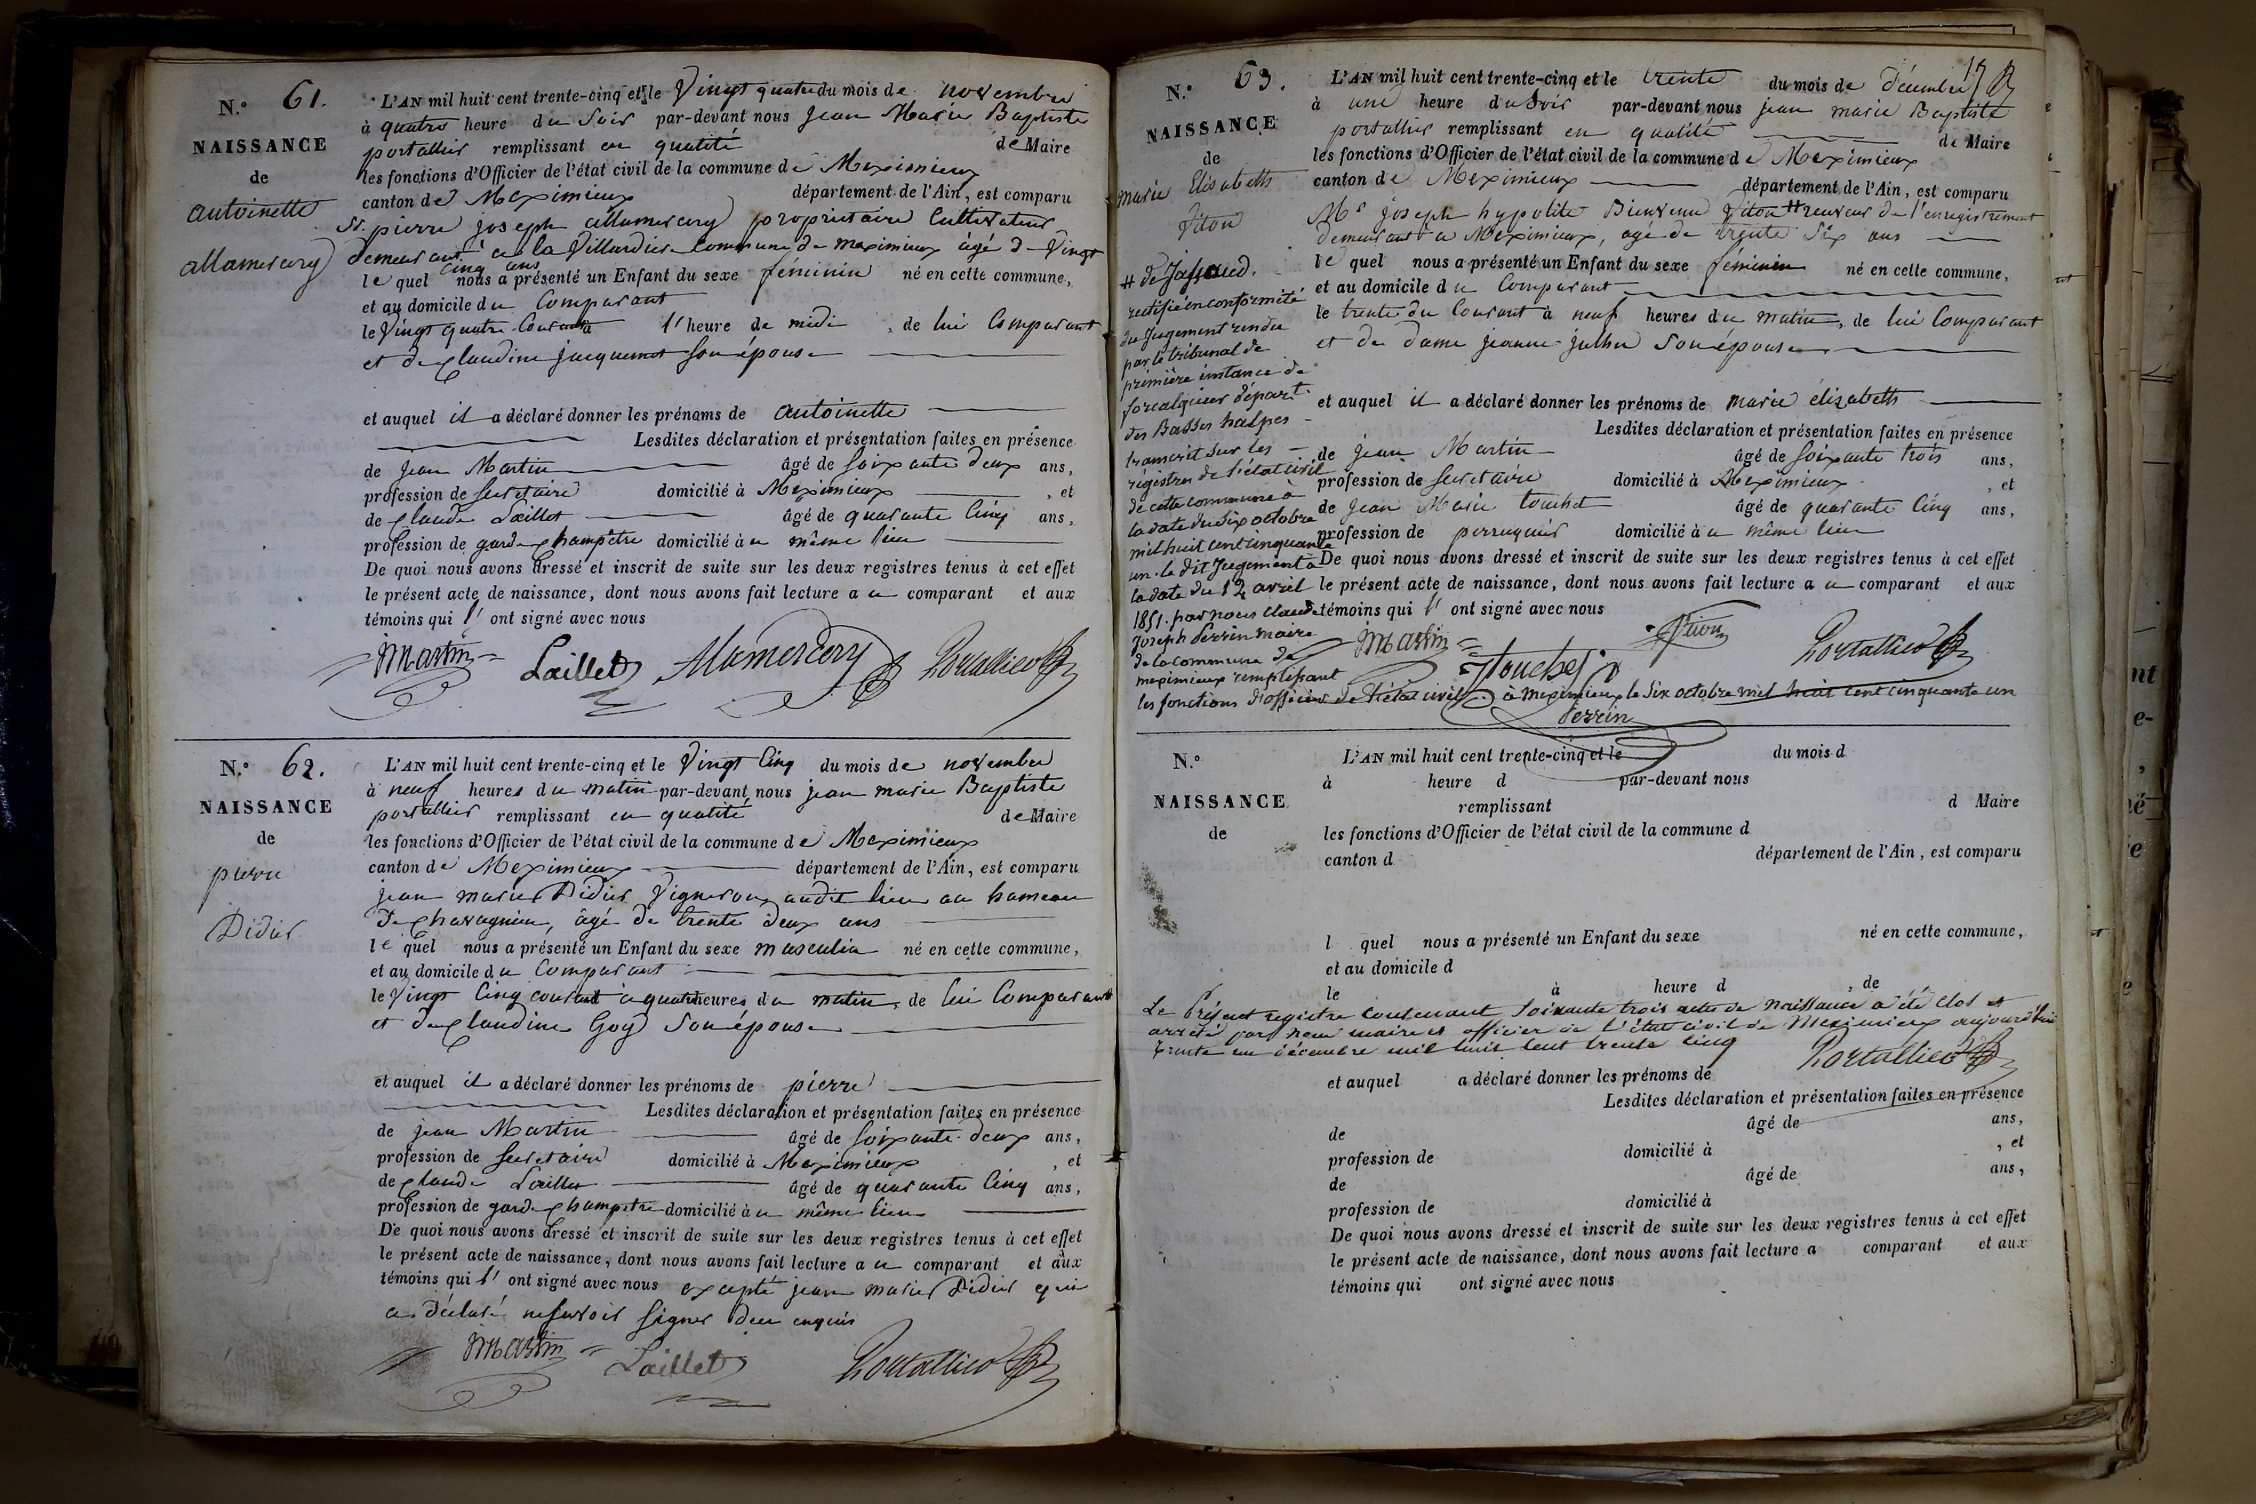 N.° 61.
NAISSANCE
de
antoinette
allamercery
L'AN mil huit cent trente-cinq et le Vingt quatre du mois de novembre
à quatre heure du Soir par-devant nous Jean Marie Baptiste
portallier remplissant en qualité de Maire
les fonctions d'Officier de l'état civil de la commune de Meximieux
canton de Meximieux département de l'Ain, est comparu
Sr. pierre joseph allamercery propriétaire Cultivateur
demeurant à la Villardière Commune de meximieux âgé de Vingt
cinq ans
le quel nous a présenté un Enfant du sexe féminin né en cette commune,
et au domicile du Comparant
le Vingt quatre Courant à l'heure de midi, de lui Comparant
et de Claudine jacquemot son épouse
et auquel il a déclaré donner les prénoms de antoinette
Lesdites déclaration et présentation faites en présence
de jean Martin âgé de soixante deux ans,
profession de secretaire domicilié à Meximieux, et
de Claude Laillet âgé de quarante Cinq ans,
profession de garde Champêtre domicilié à u même lieu
De quoi nous avons dressé et inscrit de suite sur les deux registres tenus à cet effet
le présent acte de naissance, dont nous avons fait lecture a u comparant et aux
témoins qui l' ont signé avec nous
Martin Laillet Allamercery Portallier
N.° 62.
NAISSANCE
de
pierre
Didier
L'AN mil huit cent trente-cinq et le Vingt Cinq du mois de novembre
à neuf heures du matin par-devant nous jean marie Baptiste
portallier remplissant en qualité de Maire
les fonctions d'Officier de l'état civil de la commune de Meximieux
canton de Meximieux département de l'Ain, est comparu
jean marie Didier Vigneron audit lieu au hameau
de Chavagnieu, âgé de trente deux ans
le quel nous a présenté un Enfant du sexe masculin né en cette commune,
et au domicile du Comparant
le Vingt Cinq courant à quatre heures du matin, de lui Comparant
et de Claudine Goy son épouse
et auquel il a déclaré donner les prénoms de pierre
Lesdites déclaration et présentation faites en présence
de jean Martin âgé de soixante deux ans,
profession de secretaire domicilié à Meximieux, et
de Claude Laillet âgé de quarante Cinq ans,
profession de garde Champetre domicilié à u même lieu
De quoi nous avons dressé et inscrit de suite sur les deux registres tenus à cet effet
le présent acte de naissance, dont nous avons fait lecture a u comparant et aux
témoins qui l' ont signé avec nous excepté jean marie Didier qui
a déclaré ne savoir signer de ce enquis
Martin Laillet Portallier
17
N.° 63.
NAISSANCE
de
marie Elisabeth
Viton
# de Jassaud.
rectifié en conformité
du Jugement rendu
par le tribunal de
première instance de
forcalquier départ.t
des Basses halpes
transcrit sur les
régistres de l'état civil
de cette commune à
la date du six octobre
mil huit cent cinquante
un. le dit Jugement à
la date du 12 avril
1851. par nous Claude
Joseph Perrin maire
de la commune de
meximieux remplissant
les fonctions d'officier de l'état civil. à meximieux le six octobre mil huit cent cinquante un
Perrin
L'AN mil huit cent trente-cinq et le trente du mois de décembre
à une heure du soir par-devant nous jean marie Baptiste
portallier remplissant en qualité de Maire
les fonctions d'Officier de l'état civil de la commune de Meximieux
canton de Meximieux département de l'Ain, est comparu
Mr joseph hypolite Bienvenu Viton # receveur de l'enregistrement
demeurant à Meximieux, agé de trente Six ans
le quel nous a présenté un Enfant du sexe féminin né en cette commune,
et au domicile du Comparant
le trente du Courant à neuf heures du matin, de lui Comparant
et de dame jeanne son épouse
et auquel il a déclaré donner les prénoms de marie élizabeth
Lesdites déclaration et présentation faites en présence
de jean Martin âgé de soixante trois ans,
profession de secretaire domicilié à Meximieux, et
de jean Marie touchet âgé de quarante Cinq ans,
profession de perruquier domicilié à u même lieu
De quoi nous avons dressé et inscrit de suite sur les deux registres tenus à cet effet
le présent acte de naissance, dont nous avons fait lecture a u comparant et aux
témoins qui l' ont signé avec nous
Martin Viton Portallier
Touchet
N.°
NAISSANCE
de
L'AN mil huit cent trente-cinq et le du mois d
à heure d par-devant nous
remplissant d Maire
les fonctions d'Officier de l'état civil de la commune d
canton d département de l'Ain, est comparu
l quel nous a présenté un Enfant du sexe né en cette commune,
et au domicile d
le à heure d, de
Le Présent registre contenant soixante trois actes de naissance a été clos et
arrêté par nous maire et officier de l'état civil de Meximieux aujourd'hui
trente un décembre mil huit cent trente cinq Portallier
et auquel a déclaré donner les prénoms de
Lesdites déclaration et présentation faites en présence
de âgé de ans,
profession de domicilié à, et
de âgé de ans,
profession de domicilié à
De quoi nous avons dressé et inscrit de suite sur les deux registres tenus à cet effet
le présent acte de naissance, dont nous avons fait lecture a comparant et aux
témoins qui ont signé avec nous